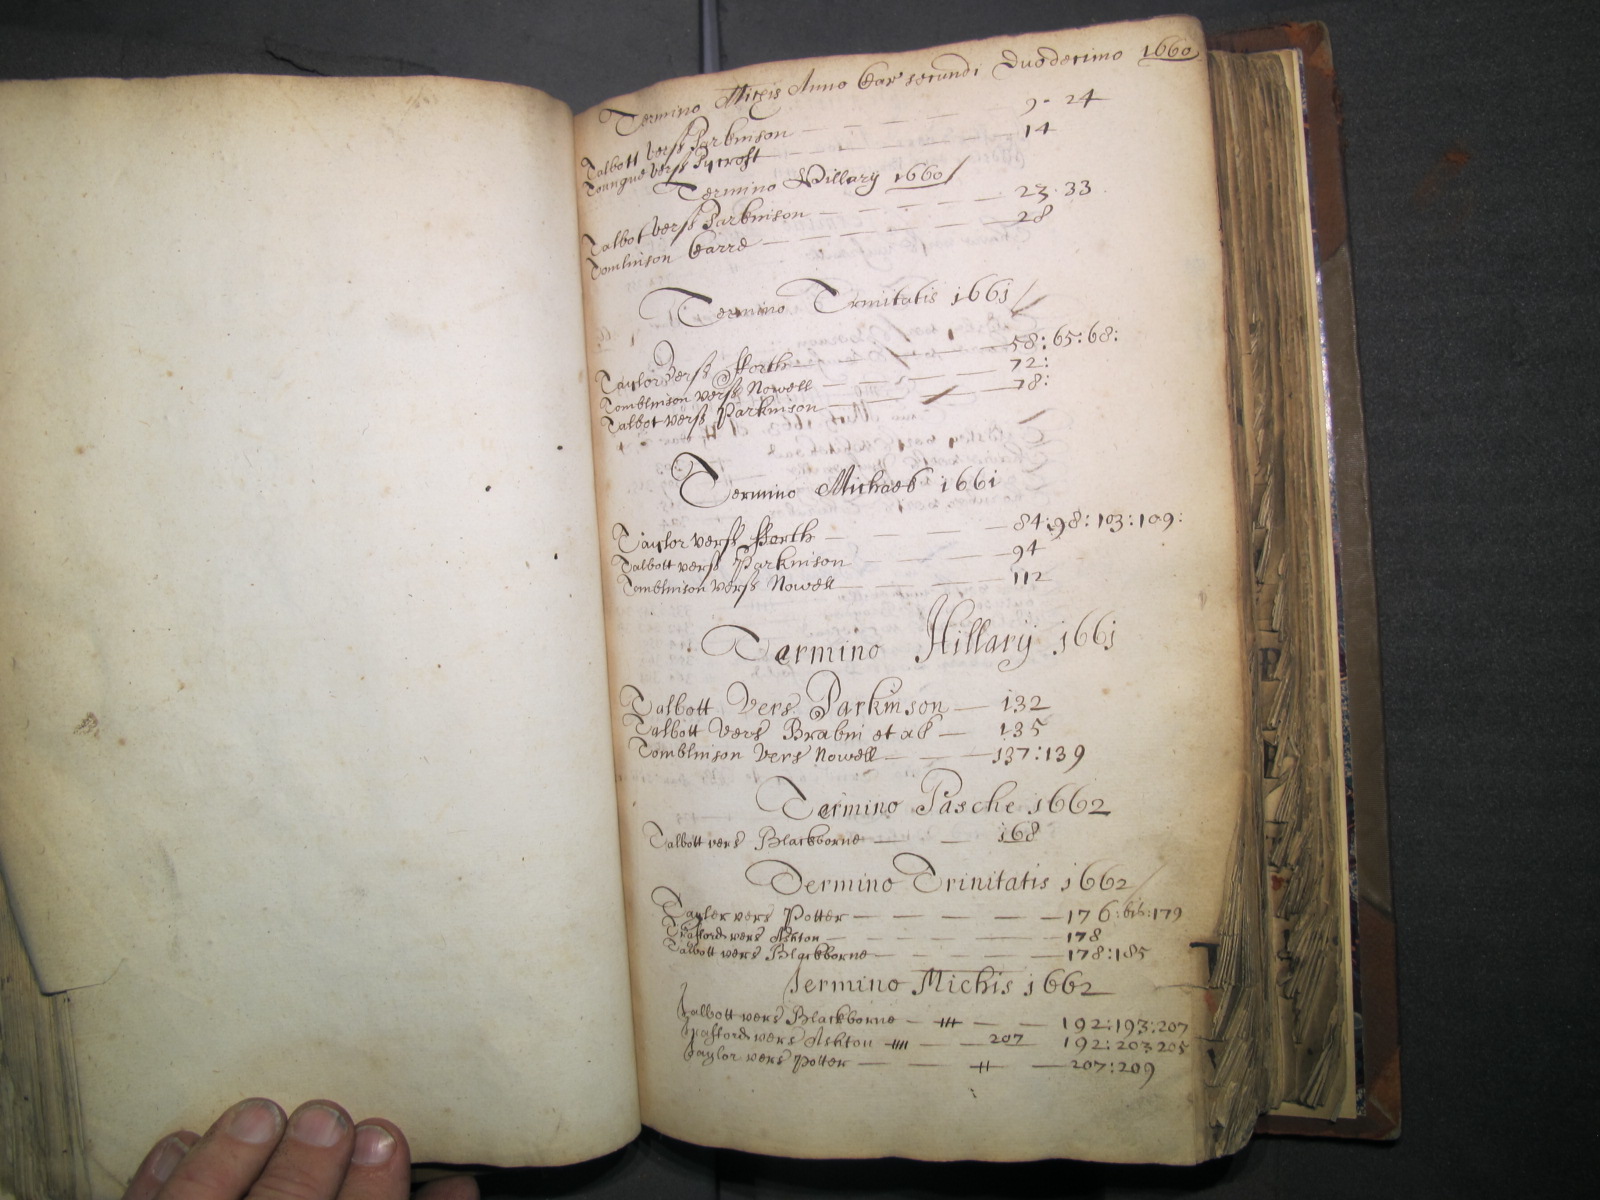 Termino Michis Anno Car secundi duodecimo 1660
Talbott verss Parkinson 9 - 24
Toungue verss Pycroft 14
Termino Hillary 1660
Talbot verss Parkinson 23 · 33
Tomlinson Carre 28
Termino Trinitatis 1661
Taylor verss fforth 58: 65: 68:
Tomblinson verss Nowell 72:
Talbot verss Parkinson 78:
Termino Michaes 1661
Taylor verss fforth 84: 98: 103: 109:
Talbott verss Parkinson 94
Tomblinson verss Nowell 112
Termino Hillary 1661
Talbott vers Parkinson 132
Talbott vers Brabin et al 135
Tomblinson vers Nowell 137: 139
Termino Pasche 1662
Talbott vers Blackborne 168
Termino Trinitatis 1662
Tayler vers Potter 176: bis: 179
Trafford vers Ashton 178
Talbott vers Blackborne 178: 185
Termino Michis 1662
Talbott vers Blackborne 192: 193: 207
Trafford vers Ashton 207 192: 203 205
Taylor vers Potter 207: 209